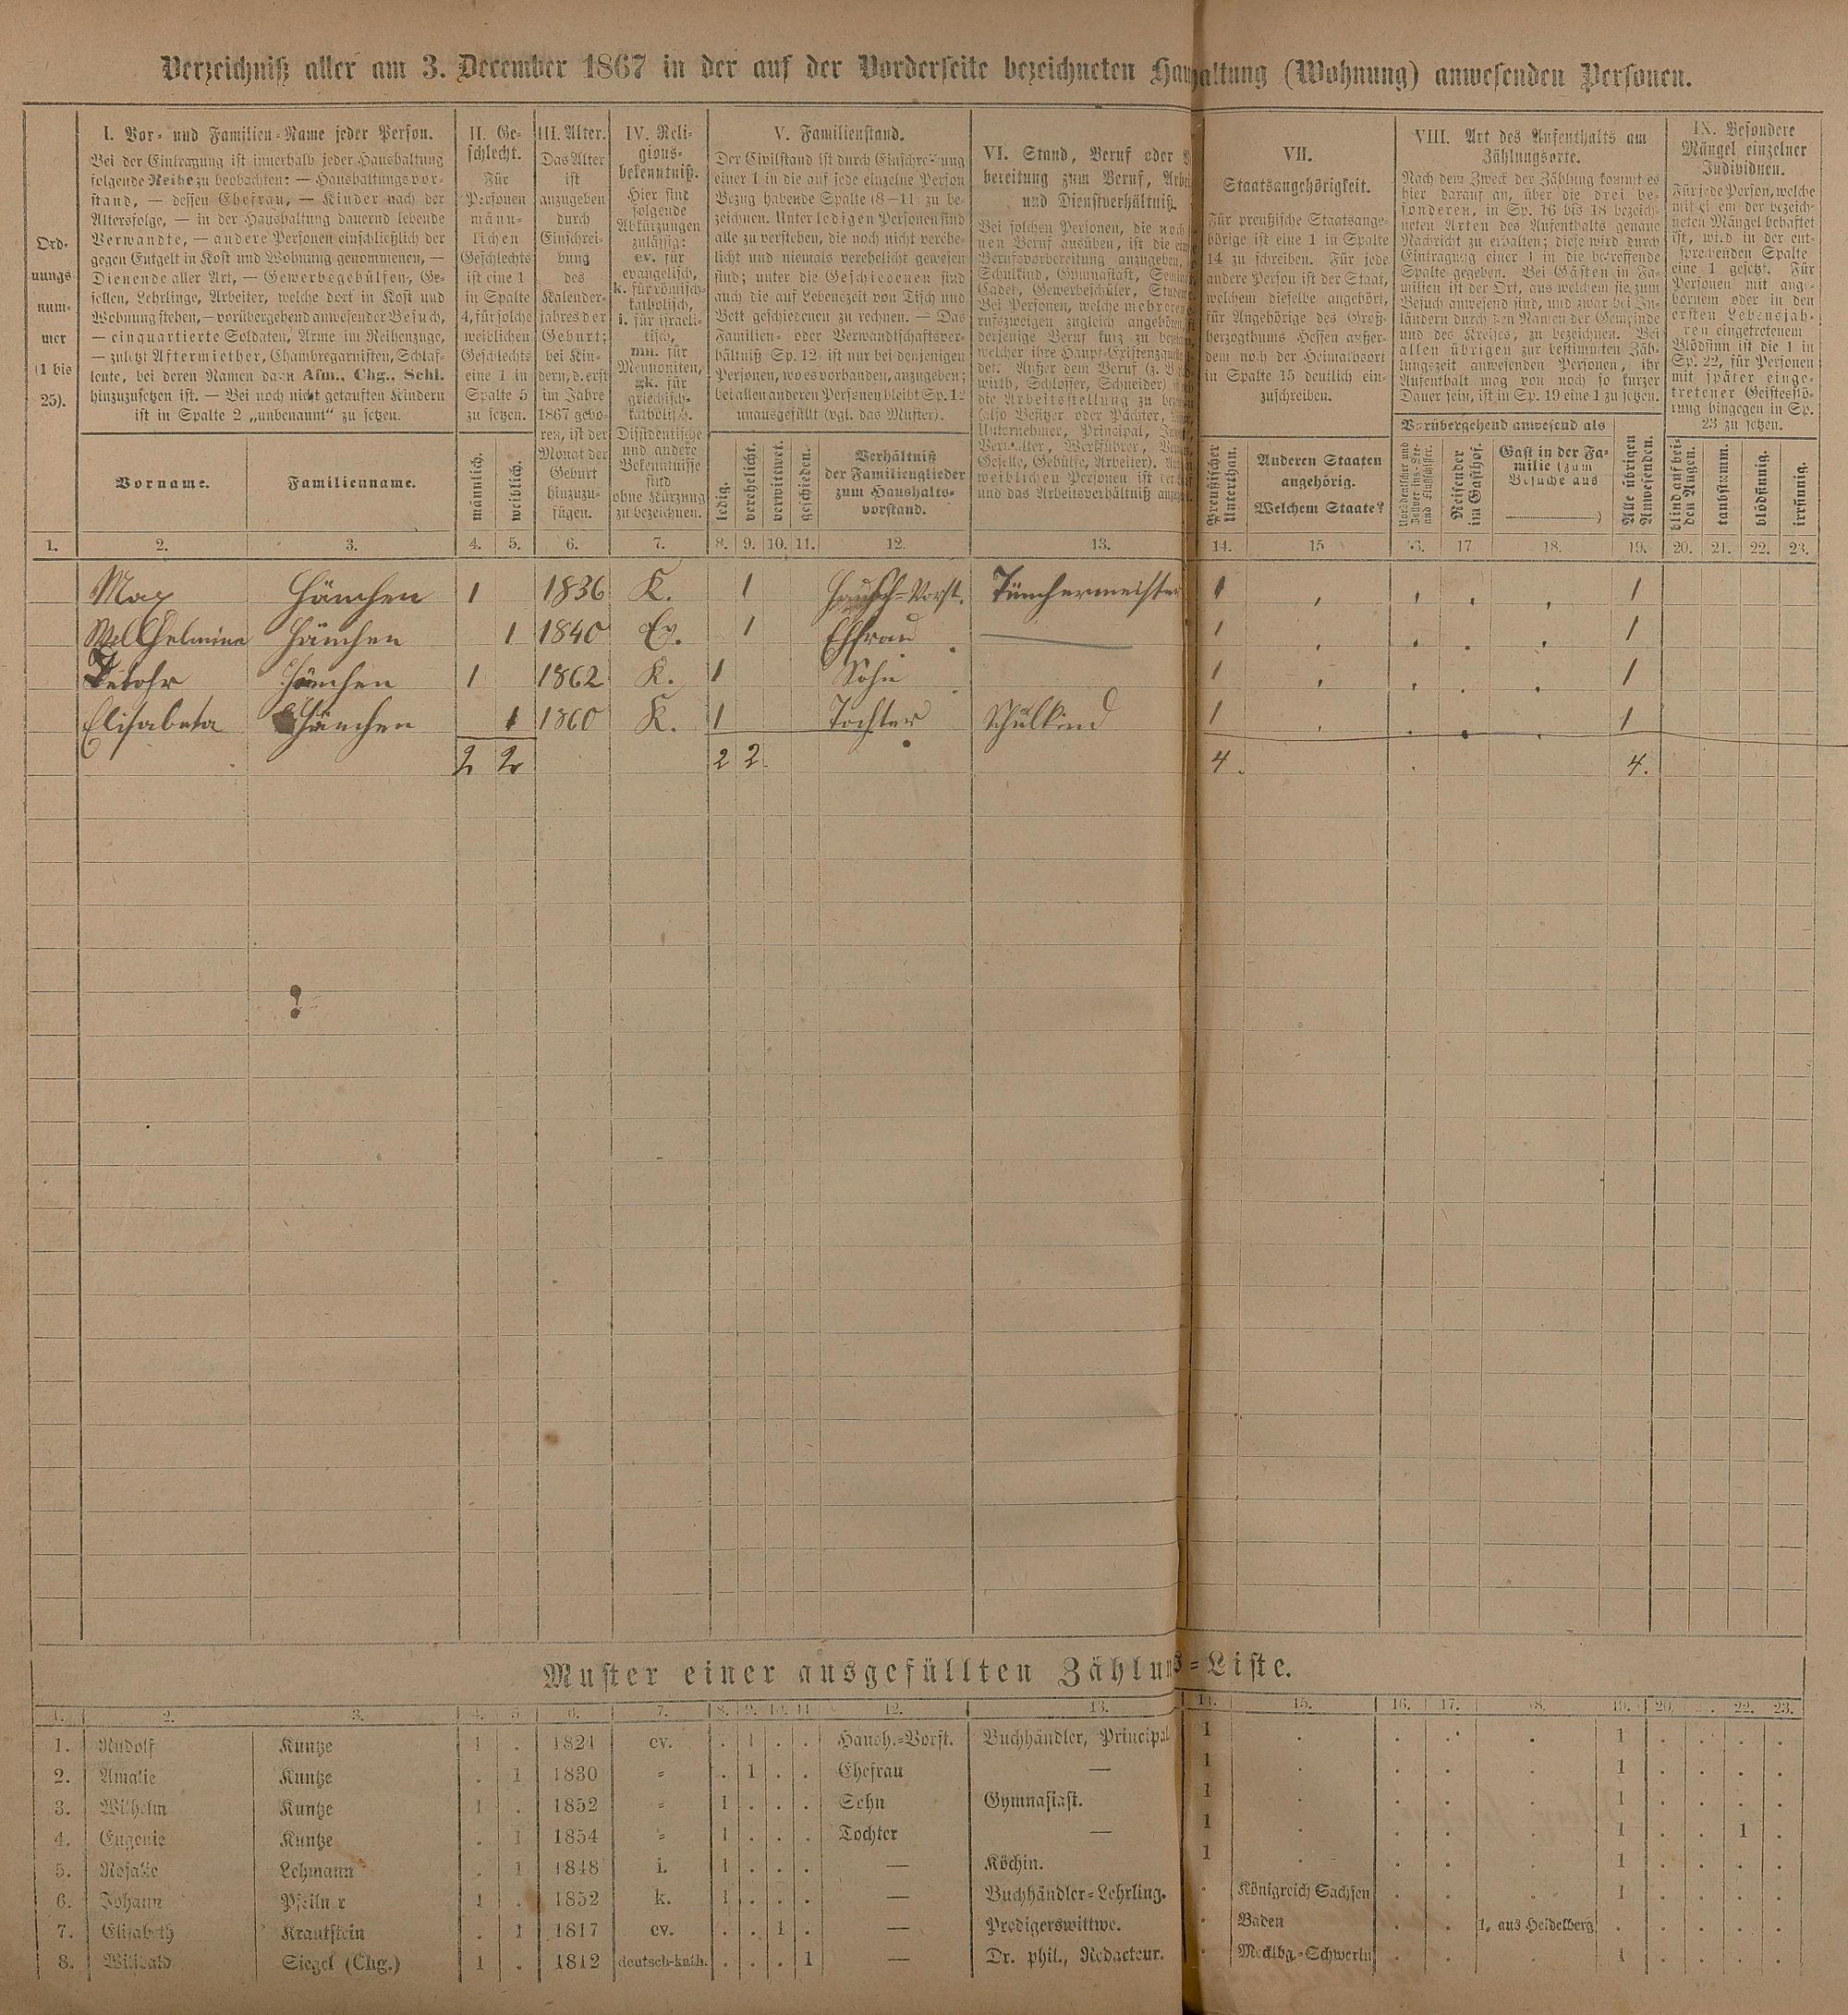 Verzeichniß aller am 3. December 1867 in der auf der Vorderseite bezeichneten Haushaltung (Wohnung) anwesenden Personen.
Ord-
nungs-
num-
mer
(1 bis
25).
I. Vor- und Familien-Name jeder Person.
Bei der Eintragung ist innerhalb jeder Haushaltung
folgende Reihe zu beobachten: — Haushaltungsvor-
stand, — dessen Ehefrau, — Kinder nach der
Altersfolge, — in der Haushaltung dauernd lebende
Verwandte, — andere Personen einschließlich der
gegen Entgelt in Kost und Wohnung genommenen, —
Dienende aller Art, — Gewerbegehülfen, Ge-
sellen, Lehrlinge, Arbeiter, welche dort in Kost und
Wohnung stehen, — vorübergehend anwesender Besuch,
— einquartierte Soldaten, Arme im Reihenzuge,
— zuletzt Aftermiether, Chambregarnisten, Schlaf-
leute, bei deren Namen dann Afm., Chg., Schl.
hinzuzusetzen ist. — Bei noch nicht getauften Kindern
ist in Spalte 2 „unbenannt“ zu setzen.
Vorname.
Familienname.
II. Ge-
schlecht.
Für
Personen
männ-
lichen
Geschlechts
ist eine 1
in Spalte
4, für solche
weiblichen
Geschlechts
eine 1 in
Spalte 5
zu setzen.
männlich.
weiblich.
III. Alter.
Das Alter
ist
anzugeben
durch
Einschrei-
bung
des
Kalender-
jahres der
Geburt;
bei Kin-
dern, d. erst
im Jahre
1867 gebo-
ren, ist der
Monat der
Geburt
hinzuzu-
fügen.
IV. Reli-
gions-
bekenntniß.
Hier sind
folgende
Abkürzungen
zulässig:
ev. für
evangelisch,
k. für römisch-
katholisch,
i. für israeli-
tisch,
mn. für
Mennoniten,
gk. für
griechisch-
katholisch.
Dissidentische
und andere
Bekenntnisse
sind
ohne Kürzung
zu bezeichnen.
V. Familienstand.
Der Civilstand ist durch Einschreibung
einer 1 in die auf jede einzelne Person
Bezug habende Spalte (8—11) zu be-
zeichnen. Unter ledigen Personen sind
alle zu verstehen, die noch nicht verehe-
licht und niemals verehelicht gewesen
sind; unter die Geschiedenen sind
auch die auf Lebenszeit von Tisch und
Bett geschiedenen zu rechnen. — Das
Familien- oder Verwandtschaftsver-
hältniß Sp. 12 ist nur bei denjenigen
Personen, wo es vorhanden, anzugeben;
bei allen anderen Personen bleibt Sp. 12
unausgefüllt (vgl. das Muster).
ledig.
verehelicht.
verwittwet.
geschieden.
Verhältniß
der Familienglieder
zum Haushalts-
vorstand.
VI. Stand, Beruf oder
bereitung zum Beruf,
und Dienstverhältniß.
Bei solchen Personen, die noch
nen Beruf ausüben, ist die
Berufsvorbereitung anzugeben,
Schulkind, Gymnasiast,
Cadet, Gewerbeschüler,
Bei Personen, welche mehreren
rufszweigen zugleich angehören,
derjenige Beruf kurz zu
welcher ihre Haupt-Existenzquelle
det. Außer dem Beruf (z. B.
wirth, Schlosser, Schneider)
die Arbeitsstellung zu
(also Besitzer oder Pächter,
Unternehmer, Principal,
Verwalter, Werkführer,
Geselle, Gehülfe, Arbeiter).
weiblichen Personen ist
und das Arbeitsverhältniß
VII.
Staatsangehörigkeit.
Für preußische Staatsange-
hörige ist eine 1 in Spalte
14 zu schreiben. Für jede
andere Person ist der Staat,
welchem dieselbe angehört,
für Angehörige des Groß-
herzogthums Hessen außer-
dem noch der Heimathsort
in Spalte 15 deutlich ein-
zuschreiben.
Preußischer
Unterthan.
Anderen Staaten
angehörig.
Welchem Staate?
VIII. Art des Aufenthalts am
Zählungsorte.
Nach dem Zweck der Zählung kommt es
hier darauf an, über die drei be-
sonderen, in Sp. 16 bis 18 bezeich-
neten Arten des Aufenthalts genaue
Nachricht zu erhalten; diese wird durch
Eintragung einer 1 in die betreffende
Spalte gegeben. Bei Gästen in Fa-
milien ist der Ort, aus welchem sie zum
Besuch anwesend sind, und zwar bei In-
ländern durch den Namen der Gemeinde
und des Kreises, zu bezeichnen. Bei
allen übrigen zur bestimmten Zäh-
lungszeit anwesenden Personen, ihr
Aufenthalt mag von noch so kurzer
Dauer sein, ist in Sp. 19 eine 1 zu setzen.
Vorübergehend anwesend als
Reisender
im Gasthof.
Gast in der Fa-
milie (zum
Besuche aus
)
Alle übrigen
Anwesenden.
IX. Besondere
Mängel einzelner
Individuen.
Für jede Person, welche
mit einem der bezeich-
neten Mängel behaftet
ist, wird in der ent-
sprechenden Spalte
eine 1 gesetzt. Für
Personen mit ange-
bornem oder in den
ersten Lebensjah-
ren eingetretenem
Blödsinn ist die 1 in
Sp. 22, für Personen
mit später einge-
tretener Geistesstö-
rung hingegen in Sp.
23 zu setzen.
blind auf bei-
den Augen.
taubstumm.
blödsinnig.
irrsinnig.
1. 2. 3. 4. 5. 6. 7. 8. 9. 10. 11. 12. 13. 14. 15 16. 17 18. 19. 20. 21. 22. 23.
Max Hämchen 1 1836 K. 1 Haush-Vorst. Tünchermeister 1 1
Wilhelmine Hämchen 1 1840 Ev. 1 Ehfrau 1 1
Hämchen 1 1862 K. 1 Sohn 1 1
Elisabeta Hämchen 1 1860 K. 1 Tochter Schulkind 1 1
2 2 2 2. 4. 4.
Muster einer ausgefüllten Zählungs-Liste.
1. 2. 3. 4. 5. 6. 7. 8. 9. 10. 11 12. 13. 14. 15. 16. 17. 18. 19. 20. 22. 23.
1. Rudolf Kuntze 1 . 1821 ev. . 1 . . Haush.-Vorst. Buchhändler, Principal 1 . . . . 1 . . . .
2. Amalie Kuntze . 1 1830 = . 1 . . Ehefrau — 1 . . . . 1 . . . .
3. Wilhelm Kuntze 1 . 1852 = 1 . . . Sohn Gymnasiast. 1 . . . . 1 . . . .
4. Eugenie Kuntze . 1 1854 = 1 . . . Tochter — 1 . . . . 1 . . 1 .
5. Rosalie Lehmann . 1 1848 i. 1 . . . — Köchin. 1 . . . . 1 . . . .
6. Johann Pfeilner 1 . 1852 k. 1 . . . — Buchhändler-Lehrling. . Königreich Sachsen . . . 1 . . . .
7. Elisabeth Krautstein . 1 1817 ev. . . 1 . — Predigerswittwe. . Baden . . 1, aus Heidelberg . . . . .
8. Willibald Siegel (Chg.) 1 . 1812 deutsch-kath. . . . 1 — Dr. phil., Redacteur. . Mecklbg.-Schwerin . . . 1 . . . .